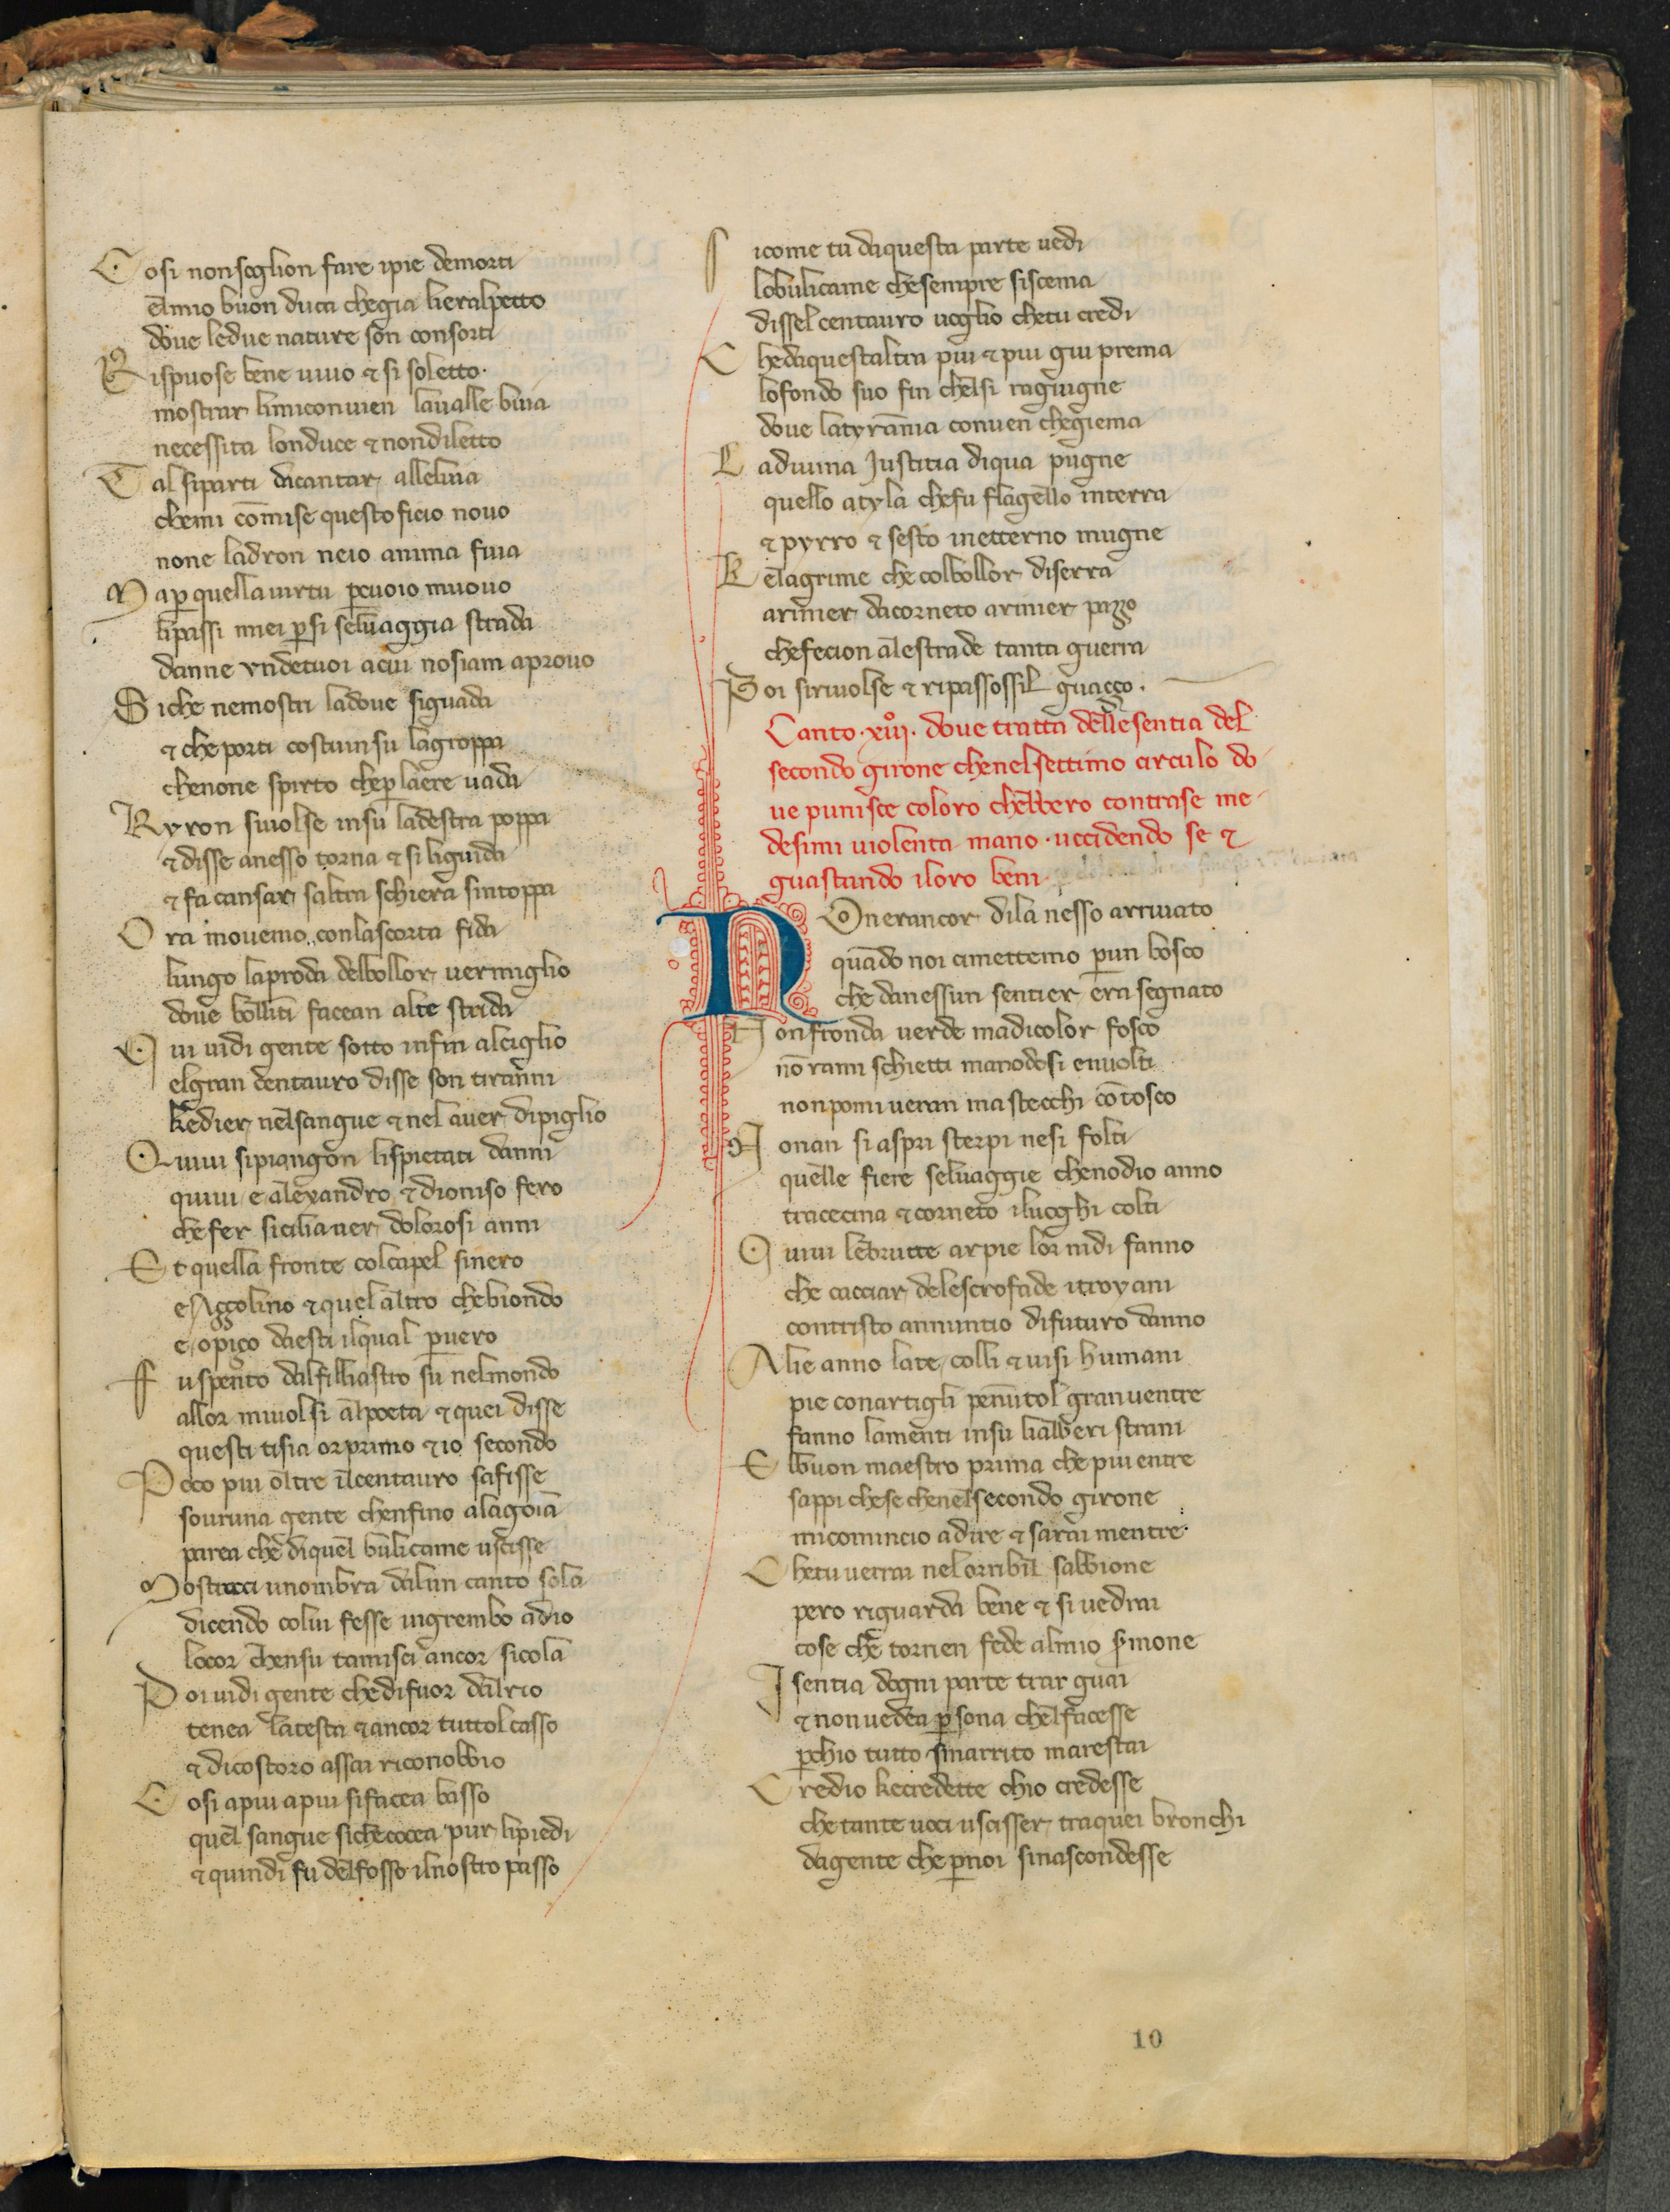 Cosi nonsoglion fare ipie demorti
elmio buon duca chegia lieralpetto
doue ledue nature son consorti
Rispuose bene uiuo & si soletto.
mostrar limiconuien laualle buia
necessita londuce & nondiletto
Tal siparti dicantar alleluia
chemi cōmise questoficio nouo
none ladron neio anima fuia
Ma ꝑ quella uirtu ꝑcuoio muouo
lipassi miei ꝑ si seluaggia strada
danne vndetuoi acui nosiam aprouo
Siche nemostri ladoue siguada
& che porti costuinsu lagroppa
chenone spirto cheꝑ laere uada
Kyron siuolse insu ladestra poppa
& disse anesso torna & si liguida
& fa cansar saltra schiera sintoppa
Ora mouemo conlascorta fida
lungo laproda delbollor uermiglio
doue bolliti facean alte strida
Qui uidi gente sotto infin alciglio
elgran centauro disse son tiranni
kedier nelsangue & nel auer dipiglio
Quiui sipiangon lispietati danni
quiui e alexandro & dioniso fero
che fer sicilia uer dolorosi anni
Et quella fronte colcapel sinero
e Aççolino & quel altro chebiondo
e opiço daesti ilqual ꝑuero
Fu spento dalfilliastro su nelmondo
allor miuolsi alpoeta & quei disse
questi tisia orprimo & io secondo
Poco piu oltre ilcentauro safisse
souruna gente chenfino alagola
parea che diquel bulicame uscisse
Mostracci unombra dalun canto sola
dicendo colui fesse ingrembo adio
locor chensu tamisci ancor sicola
Poi uidi gente chedifuor delrio
tenea latesta & ancor tuttol casso
& dicostoro assai riconobbio
Cosi apiu apiu sifacea basso
quel sangue sichecocea pur lipiedi
& quindi fu delfosso ilnostro passo
Sicome tu daquesta parte uedi
lobulicame chesempre siscema
dissel centauro uoglio chetu credi
Che daquestaltra piu & piu giu prema
lofondo suo fin chelsi ragiugne
doue latyrānia conuen chegiema
La diuina Justitia diqua pugne
quello atyla chefu flagello interra
& pyrro & sesto inetterno mugne
Le lagrime che colbollor diserra
arinier dacorneto arinier pazzo
chefecion alestrade tanta guerra
Poi siriuolse & ripassossil guaçço.
Canto .xiij. doue tratta dellesentia del
secondo girone chenelsettimo circulo do
ue punisce coloro chebbero contrase me
desimi uiolenta mano . uccidendo se &
guastando iloro beni
NOnerancor dila nesso arriuato
quādo noi cimettemo ꝑun bosco
che danessun sentier era segnato
Nonfronda uerde madicolor fosco
nō rami schietti manodosi enuolti
nonpomi ueran mastecchi cō tosco
Nonan si aspri sterpi nesi folti
quelle fiere seluaggie chenodio anno
tracecina & corneto iluoghi colti
Quiui lebrutte arpie lor nidi fanno
che cacciar delestrofade itroyani
contristo annuntio difuturo danno
Alie anno late colli & uisi humani
pie conartigli pennutol granuentre
fanno lamenti insu lialberi strani
Elbuon maestro prima che piu entre
sappi chese chenelsecondo girone
micomincio adire & sarai mentre
Chetu uerrai nelorribil sabbione
pero riguarda bene & si uedrai
cose che tornen fede almio ẜmone
Isentia dogni parte trar guai
& nonuedea ꝑsona chelfacesse
ꝑchio tutto smarrito marestai
Credio kecredette chio credesse
che tante uoci uscisser traquei bronchi
dagente che ꝑnoi sinascondesse
10